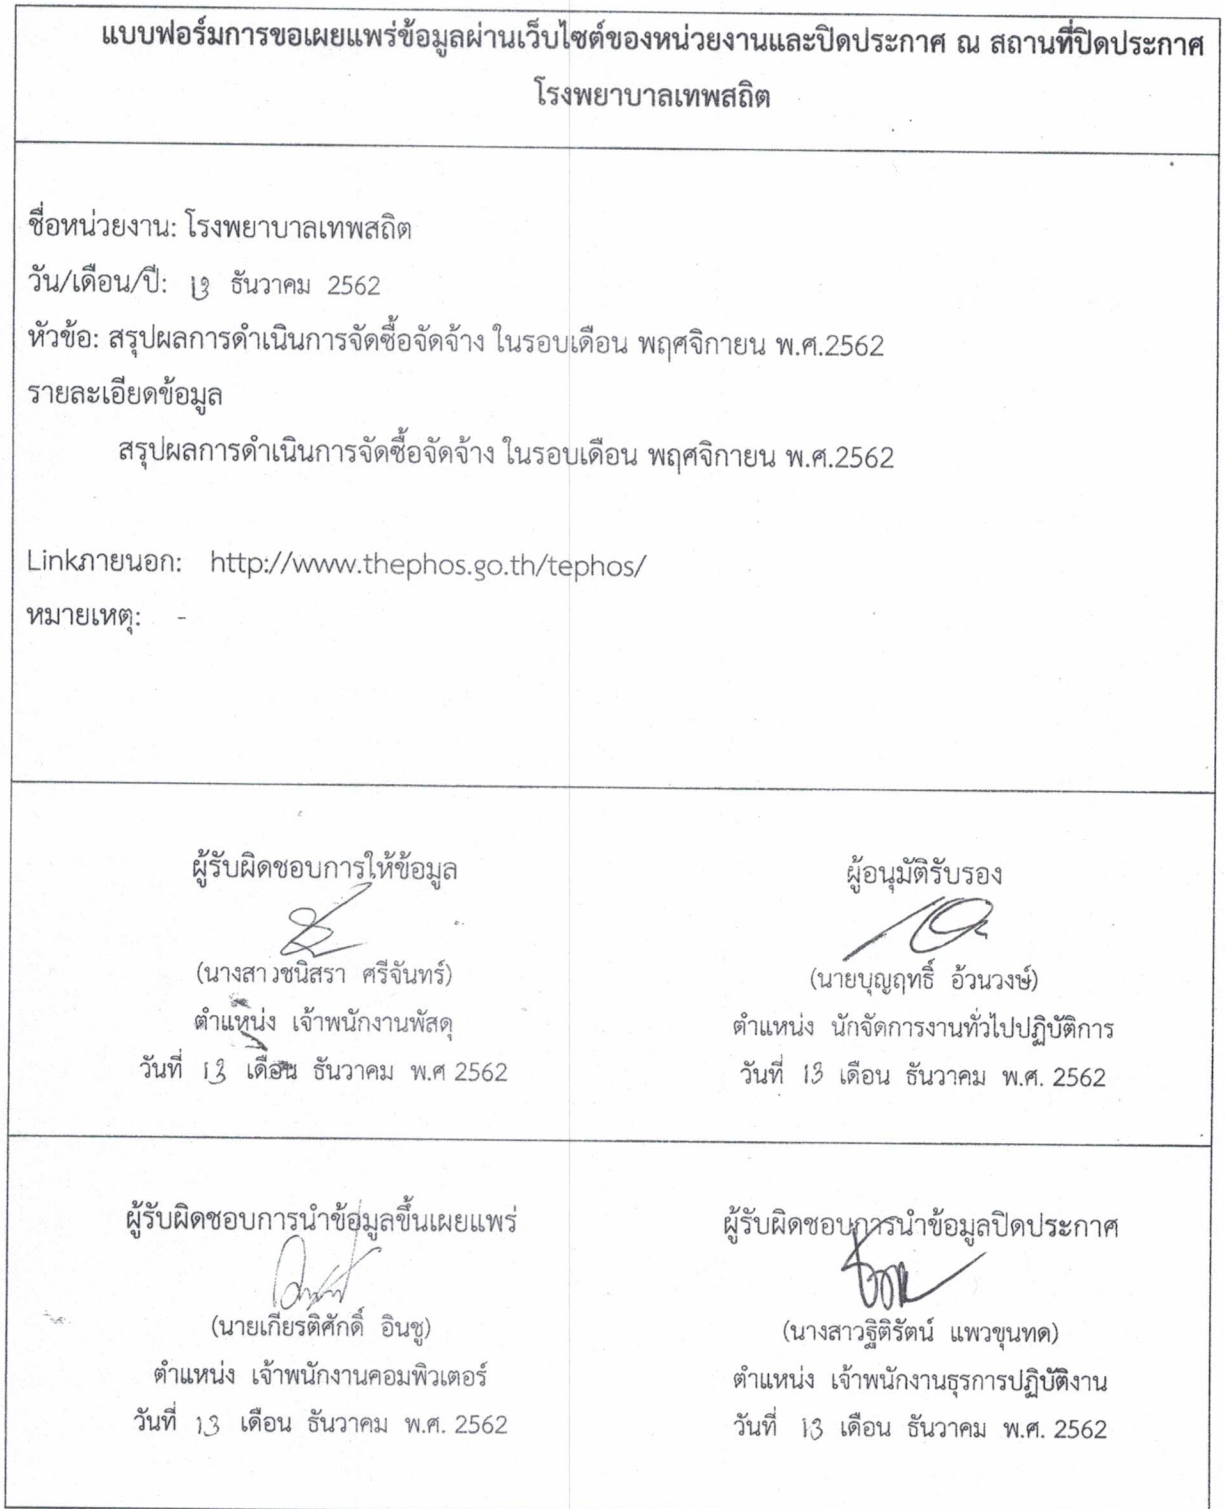 แบบฟอร์มการขอเผยแพร่ข้อมูลผ่านเว็บไซต์ของหน่วยงานและปิดประกาศ ณ สถานที่ปิดประกาศ
โรงพยาบาลเทพสถิต
ชื่อหน่วยงาน: โรงพยาบาลเทพสถิต
วัน/เดือน/ปี: 13 ธันวาคม 2562
หัวข้อ: สรุปผลการดำเนินการจัดซื้อจัดจ้าง ในรอบเดือน พฤศจิกายน พ.ศ.2562
รายละเอียดข้อมูล
สรุปผลการดำเนินการจัดซื้อจัดจ้าง ในรอบเดือน พฤศจิกายน พ.ศ.2562
Linkภายนอก: http://www.thephos.go.th/tephos/
หมายเหตุ: -
ผู้รับผิดชอบการให้ข้อมูล
(นางสาวชนิสรา ศรีจันทร์)
ตำแหน่ง เจ้าพนักงานพัสดุ
วันที่ 13 เดือน ธันวาคม พ.ศ 2562
ผู้อนุมัติรับรอง
(นายบุญฤทธิ์ อ้วนวงษ์)
ตำแหน่ง นักจัดการงานทั่วไปปฏิบัติการ
วันที่ 13 เดือน ธันวาคม พ.ศ. 2562
ผู้รับผิดชอบการนำข้อมูลขึ้นเผยแพร่
(นายเกียรติศักดิ์ อินชู)
ตำแหน่ง เจ้าพนักงานคอมพิวเตอร์
วันที่ 13 เดือน ธันวาคม พ.ศ. 2562
ผู้รับผิดชอบการนำข้อมูลปิดประกาศ
(นางสาวฐิติรัตน์ แพวขุนทด)
ตำแหน่ง เจ้าพนักงานธุรการปฏิบัติงาน
วันที่ 13 เดือน ธันวาคม พ.ศ. 2562